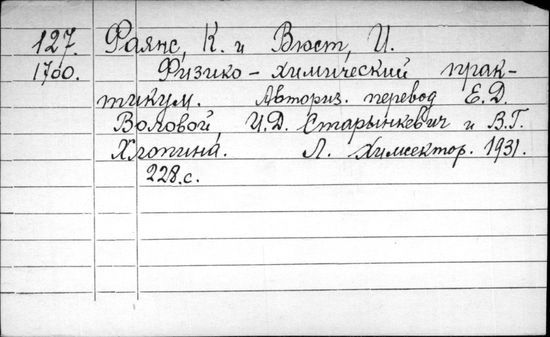 127. Фаянс, К. и Вюст, И.
1700. Физико-химический прак-
тикум. Авториз. перевод Е.Д.
Воловой, И.Д. Старынкевич и В.Г.
Хлопина. Л. Химсектор. 1931.
228.с.